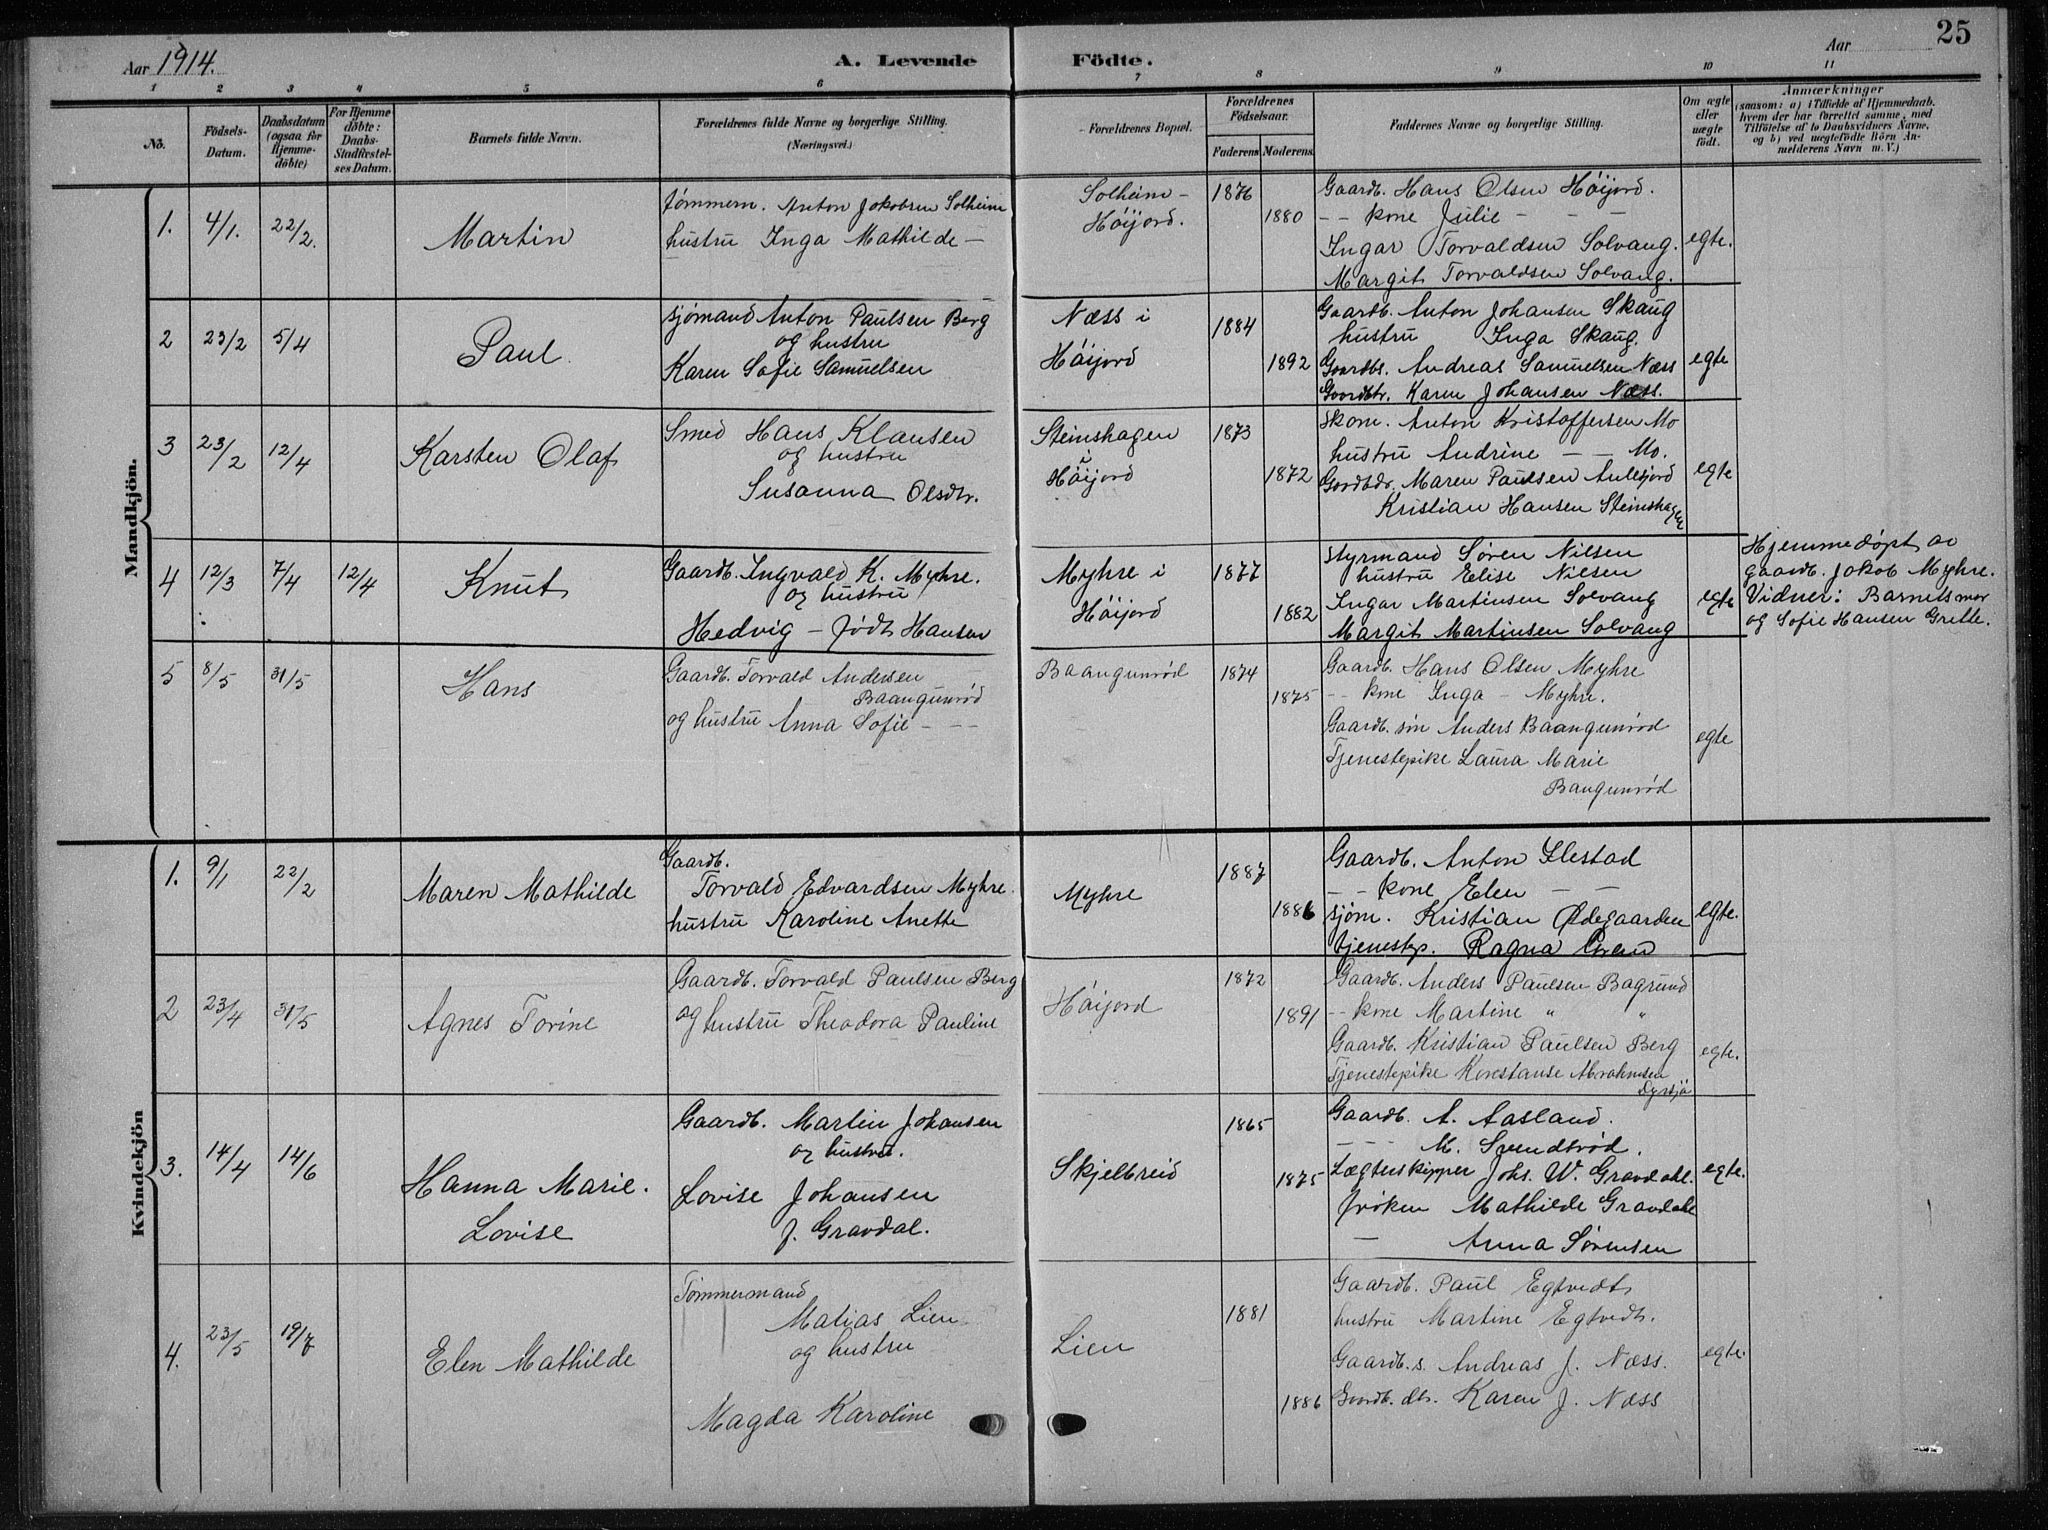 25
Aar 1914.
A. Levende Födte.
Aar
1 2 3 4 5 6 7 8 9 10 11
No.
Födsels-
Datum.
Daabsdatum
(ogsaa for
Hjemme-
döbte)
For Hjemme
döbte:
Daabs-
Stadfæstel-
ses Datum.
Barnets fulde Navn.
Forældrenes fulde Navne og borgerlige Stilling.
(Næringsvei.)
Forældrenes Bopæl.
Forældrenes
Födselsaar.
Faderens Moderens.
Faddernes Navne og borgerlige Stilling.
Om ægte
eller
uægte
født.
Anmærkninger
(saasom: a) i Tilfælde af Hjemmedaab.
hvem der har forrettet samme, med
Tilföielse af to Daabsvidners Navne,
og b) ved uægtefödte Börn An-
melderens Navn m. V.)
Mandkjön.
1. 4/1. 22/2. Martin
tømmerm. Anton Jakobsen Solheim
hustru Inga Mathilde —
Solheim –
Höijord.
1876
1880
Gaardb. Hans Olsen Höijord.
– – kone Julie – – –
Ingar Torvaldsen Solvang.
Margit Torvaldsen Solvang.
egte.
2 23/2 5/4 Paul.
sjømand Anton Paulsen Berg
og hustru
Karen Sofie Samuelsen
Næss i
Höijord
1884
1892
Gaardb. Anton Johansen Skaug
hustru Inga Skaug.
Gaardbs. Andreas Samuelsen Næss
Gaardbtr. Karen Johansen Næss.
egte
3 23/2 12/4 Karsten Olaf
Smed Hans Klausen
og hustru
Susanna Olsdtr.
Steinshagen
i
Höijord
1873
1872
Skom. Anton Kristoffersen Mo
hustru Andrine – – Mo.
Gardbdr. Maren Paulsen
Kristian Hansen Steinshagen
egte
4 12/3 7/4 12/4 Knut
Gaardb. Ingvald K. Myhre.
og hustru
Hedvig – født Hansen
Myhre i
Höijord
1877
1882
Styrmand Søren Nilsen
hustru Elise Nilsen
Ingar Martinsen Solvang
Margit Martinsen Solvang
egte
Hjemmedøpt av
gaardb. Jakob Myhre.
Vidner: Barnets mor
og Sofie Hansen Grette.
5 8/5 31/5 Hans
Gaardb. Torvald Andersen
Baangunrød
og hustru Anna Sofie – – –
Baangunrød
1874
1875
Gaardb. Hans Olsen Myhre
– – kone Inga – Myhre.
Gaardb. søn Anders Baangunrød
Tjenestepike Laura Marie
Bangunrød
egte
Kvindekjön
1. 9/1 22/2 Maren Mathilde
Gaardb.
Torvald Edvardsen Myhre.
hustru Karoline Anette
Myhre
1887
1886
Gaardb. Anton Ilestad
– – kone Elen – –
sjøm. Kristian Ødegaarden
tjenestep. Ragna
egte.
2 23/4 31/5 Agnes Torine
Gaardb. Torvald Paulsen Berg
og hustru Theodora Pauline
Höijord
1872
1891
Gaardb. Anders Paulsen Bagrund
– – kone Martine „ „
Gaardb. Kristian Paulsen Berg
Tjenestepike Konstanse Abrahmsen
egte.
3. 14/4 14/6 Hanna Marie.
Lovise
Gaardb. Martin Johansen
og hustru.
Lovise Johansen
f. Gravdal.
Skjelbreid
1865
1875
Gaardb. A. Aasland.
– – – M. Svendsrød.
Lægterskipper Johs. W. Gravdahl.
frøken Mathilde Gravdahl
— Anna Sørensen
egte.
4. 23/5 19/7 Elen Mathilde
Tømmermand
Matias Lien
og hustru
Magda Karoline
Lien
1881
1886
Gaardb. Paul Egtvedt
hustru Martine Egtvedt.
Gaardb. s. Andreas J. Næss.
Gaardb. dtr. Karen J. Næss
egte.